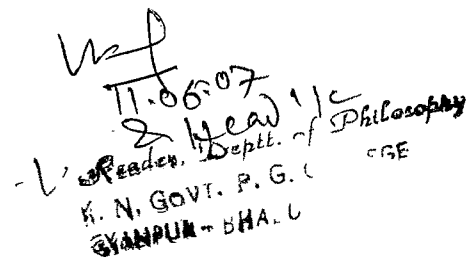 11.06.07
& Head
Reader, Deptt. of Philosophy
K. N. GOVT. P. G.
GYANPUR - BHA